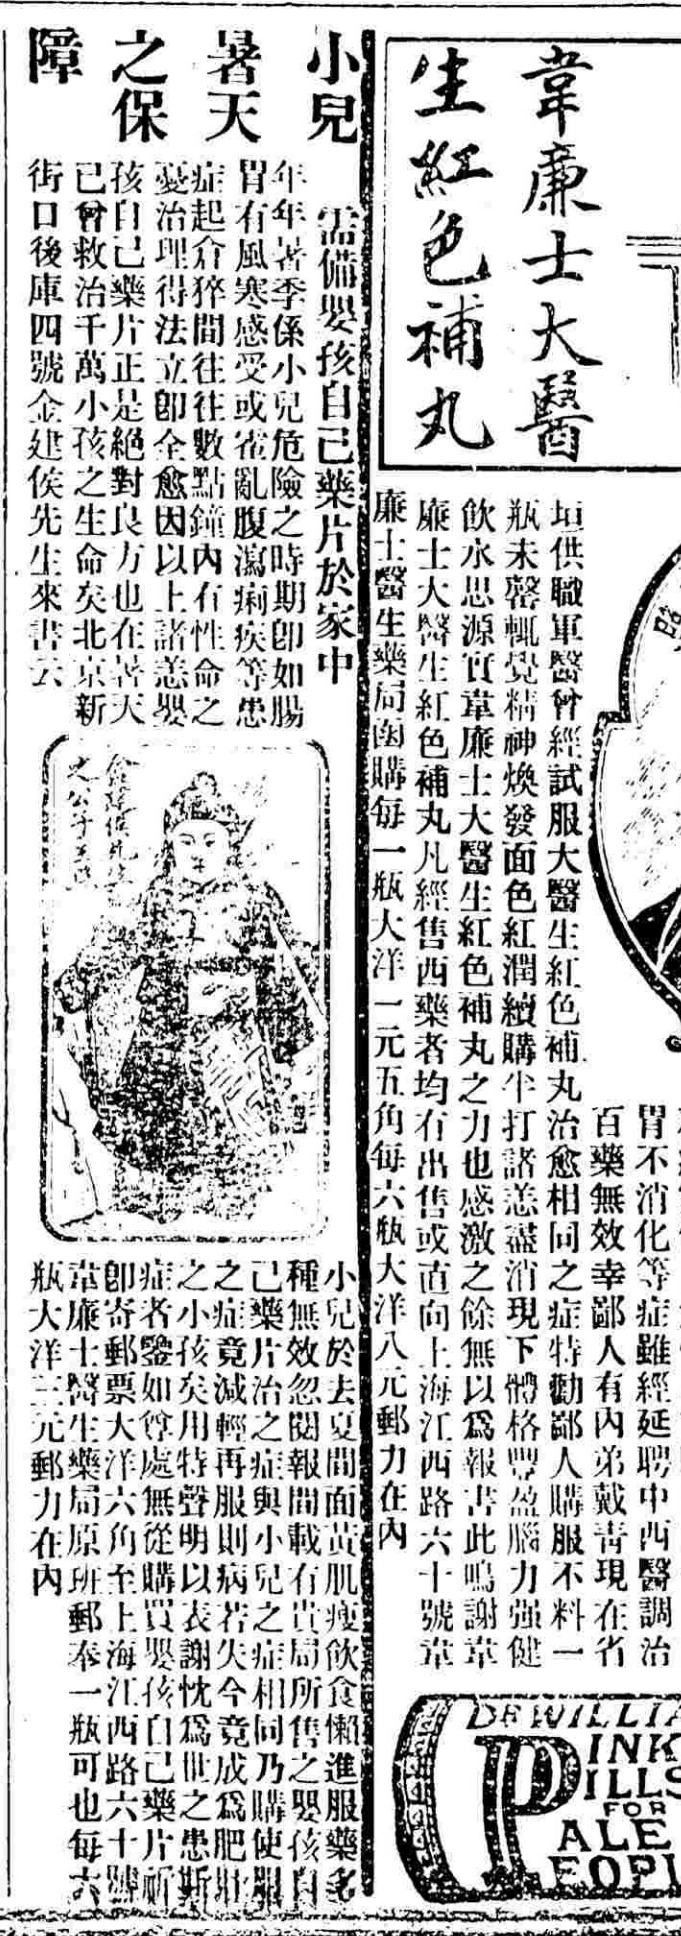 韋廉士大醫
生紅色補丸
胃不消化等症雖經延聘中西醫調治
百藥無效幸鄙人有內弟戴青現在省
垣供職軍醫曾經試服大醫生紅色補丸治愈相同之症特勸鄙人購服不料一
瓶未罄輒覺精神煥發面色紅潤續購半打諸恙盡消現下體格豐盈腦力强健
飲水思源實韋廉士大醫生紅色補丸之力也感激之餘無以爲報書此鳴謝韋
廉士大醫生紅色補丸凡經售西藥者均有出售或直向上海江西路六十號韋
廉士醫生藥局函購每一瓶大洋一元五角每六瓶大洋八元郵力在內
DR WILLIA
PINK
PILLS
FOR
PALE
PEOPL
小兒
暑天
之保
障
需備嬰孩自己藥片於家中
年年暑季係小兒危險之時期卽如腸
胃有風寒感受或霍亂腹瀉痢疾等患
症起介猝間往往數點鐘內有性命之
憂治理得法立卽全愈因以上諸恙嬰
孩自己藥片正是絕對良方也在暑天
已曾救治千萬小孩之生命矣北京新
街口後庫四號金建侯先生來書云
金建侯先生
之公子玉
小兒於去夏間面黃肌瘦飲食懶進服藥多
種無效忽閱報間載有貴局所售之嬰孩自
己藥片治之症與小兒之症相同乃購使服
之症竟減輕再服則病若失今竟成爲肥壯
之小孩矣用特聲明以表謝忱爲世之患斯
症者鑒如尊處無從購買嬰孩自己藥片祈
卽寄郵票大洋六角至上海江西路六十號
韋廉士醫生藥局原班郵奉一瓶可也每六
瓶大洋三元郵力在內